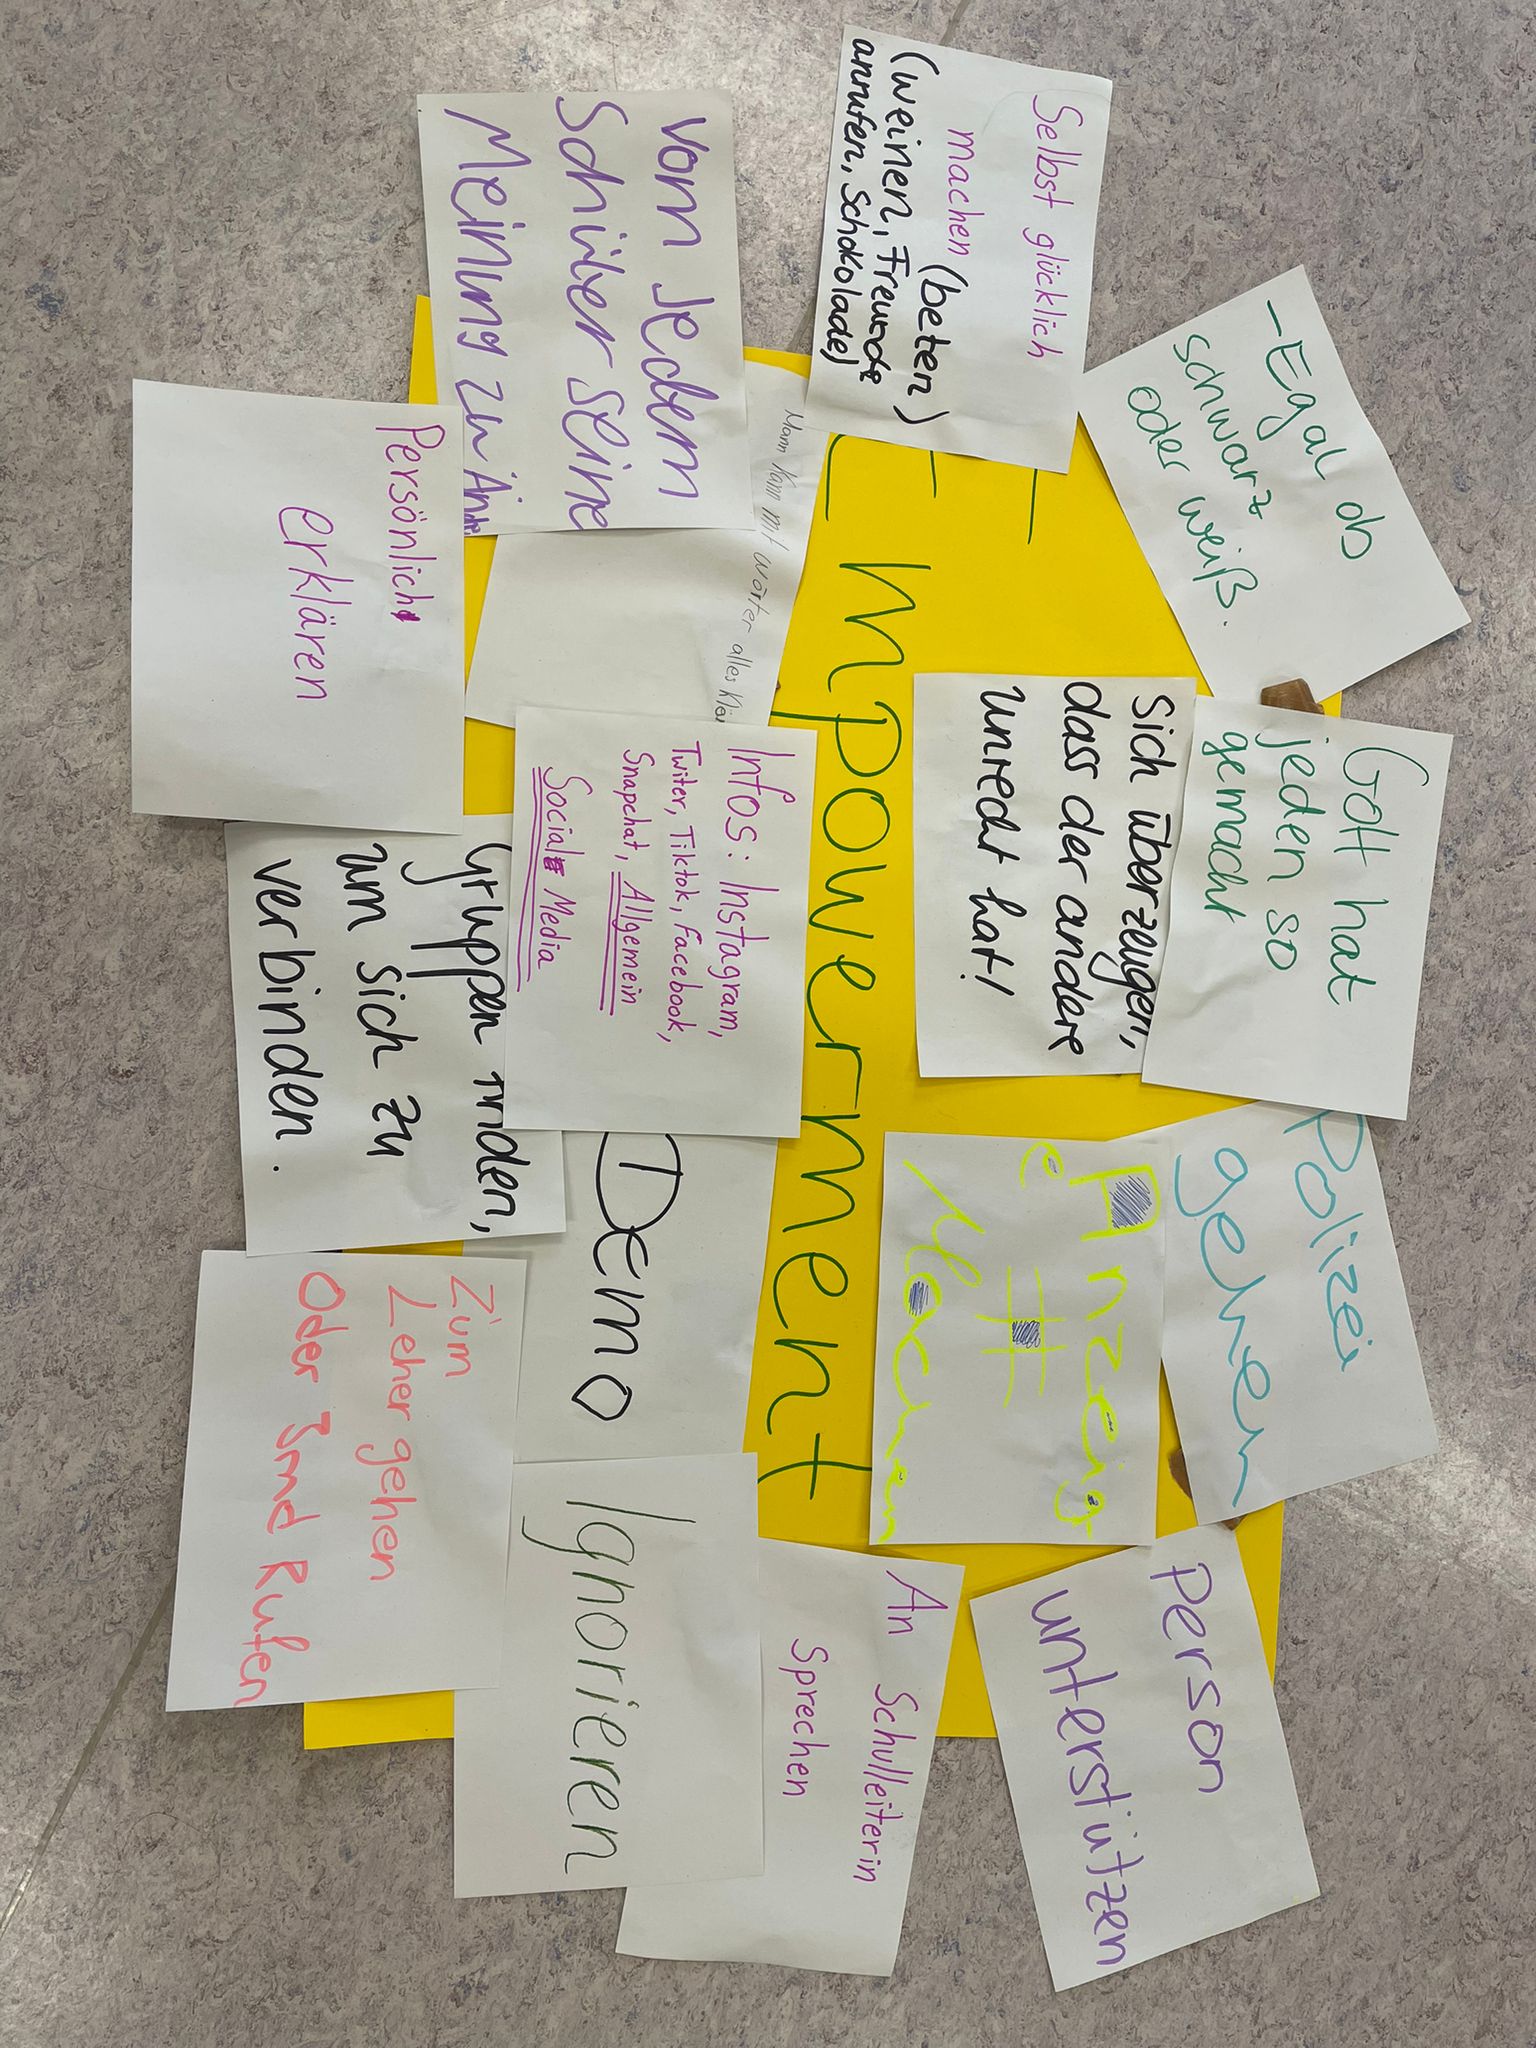 Selbst glücklich
machen (beten)
(weinen, Freunde
anrufen, Schokolade)
-Egal ob
schwarz
oder weiß.
Gott hat
jeden so
gemacht
Sich überzeugen,
dass der andere
unrecht hat!
Polizei
gehen
Anzeig
e
#
Machen
Person
unterstützen
Empowerment
Vom Jedem
Schüler seine
Meinung zu
Mann kann mit Wörter alles
Infos: Instagram,
Twiter, Tiktok, Facebook,
Snapchat, Allgemein
Social Media
Demo
Ignorieren
An Schulleiterin
Sprechen
Persönlich
erklären
Gruppen finden,
um sich zu
verbinden.
Zum
Leher gehen
Oder Smd Rufen